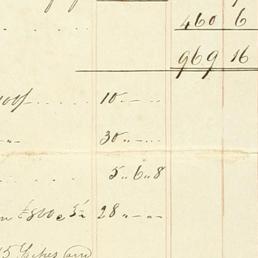 460 6
969 16
10 .. — ..
30 .. — ..
5 .. 6 .. 8
£800 @ 3½ 28 .. — .. —